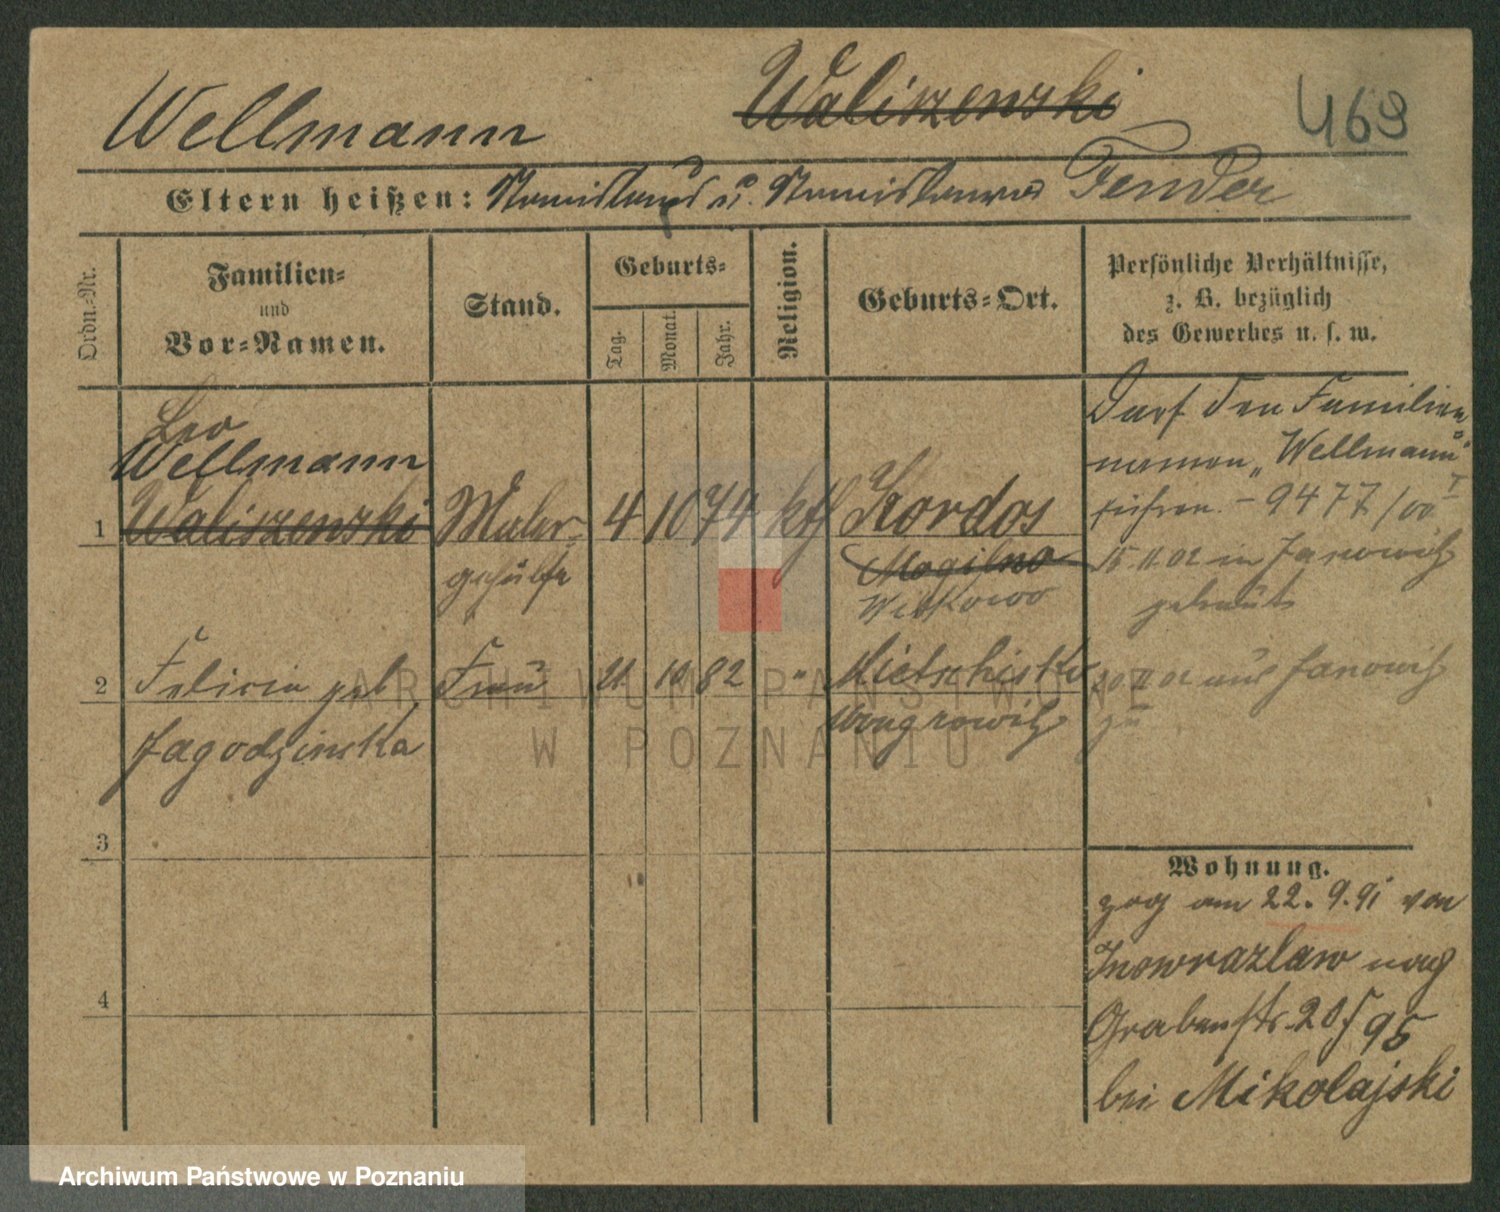 Wellmann Waliszewski 469
Eltern heißen: Stanislaus u. Stanislawa Fender
Ordn.-Nr.
Familien-
und
Vor-Namen.
Stand.
Geburts-
Tag.
Monat.
Jahr.
Religion.
Geburts-Ort.
Persönliche Verhältnisse,
z. B. bezüglich
des Gewerbes u. s. w.
Leo
Wellmann
1 Waliszewski Maler- 4 10 74 kth Kordos
gehülfe
Mogilno
Witkowo
Darf den Familien
namen „Wellmann“
führen. – 9477/00 I
15.11.02 in Janowitz
getraut
2 Felicia geb Frau 21 10 82 " Mietschisko
Jagodzinska
Wongrowitz
20 II 02 aus Janowitz
zu
3
4
Wohnung.
zog am 22.9.91 von
Inowrazlaw nach
Grabenstr. 20 f 95
bei Mikolajski
ARCHIWUM PAŃSTWOWE
W POZNANIU
Archiwum Państwowe w Poznaniu